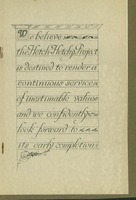 We believe
the Hetch Hetchy Project
is destined to render a
continuous service
of inestimable value
and we confidently
look forward to
its early completion